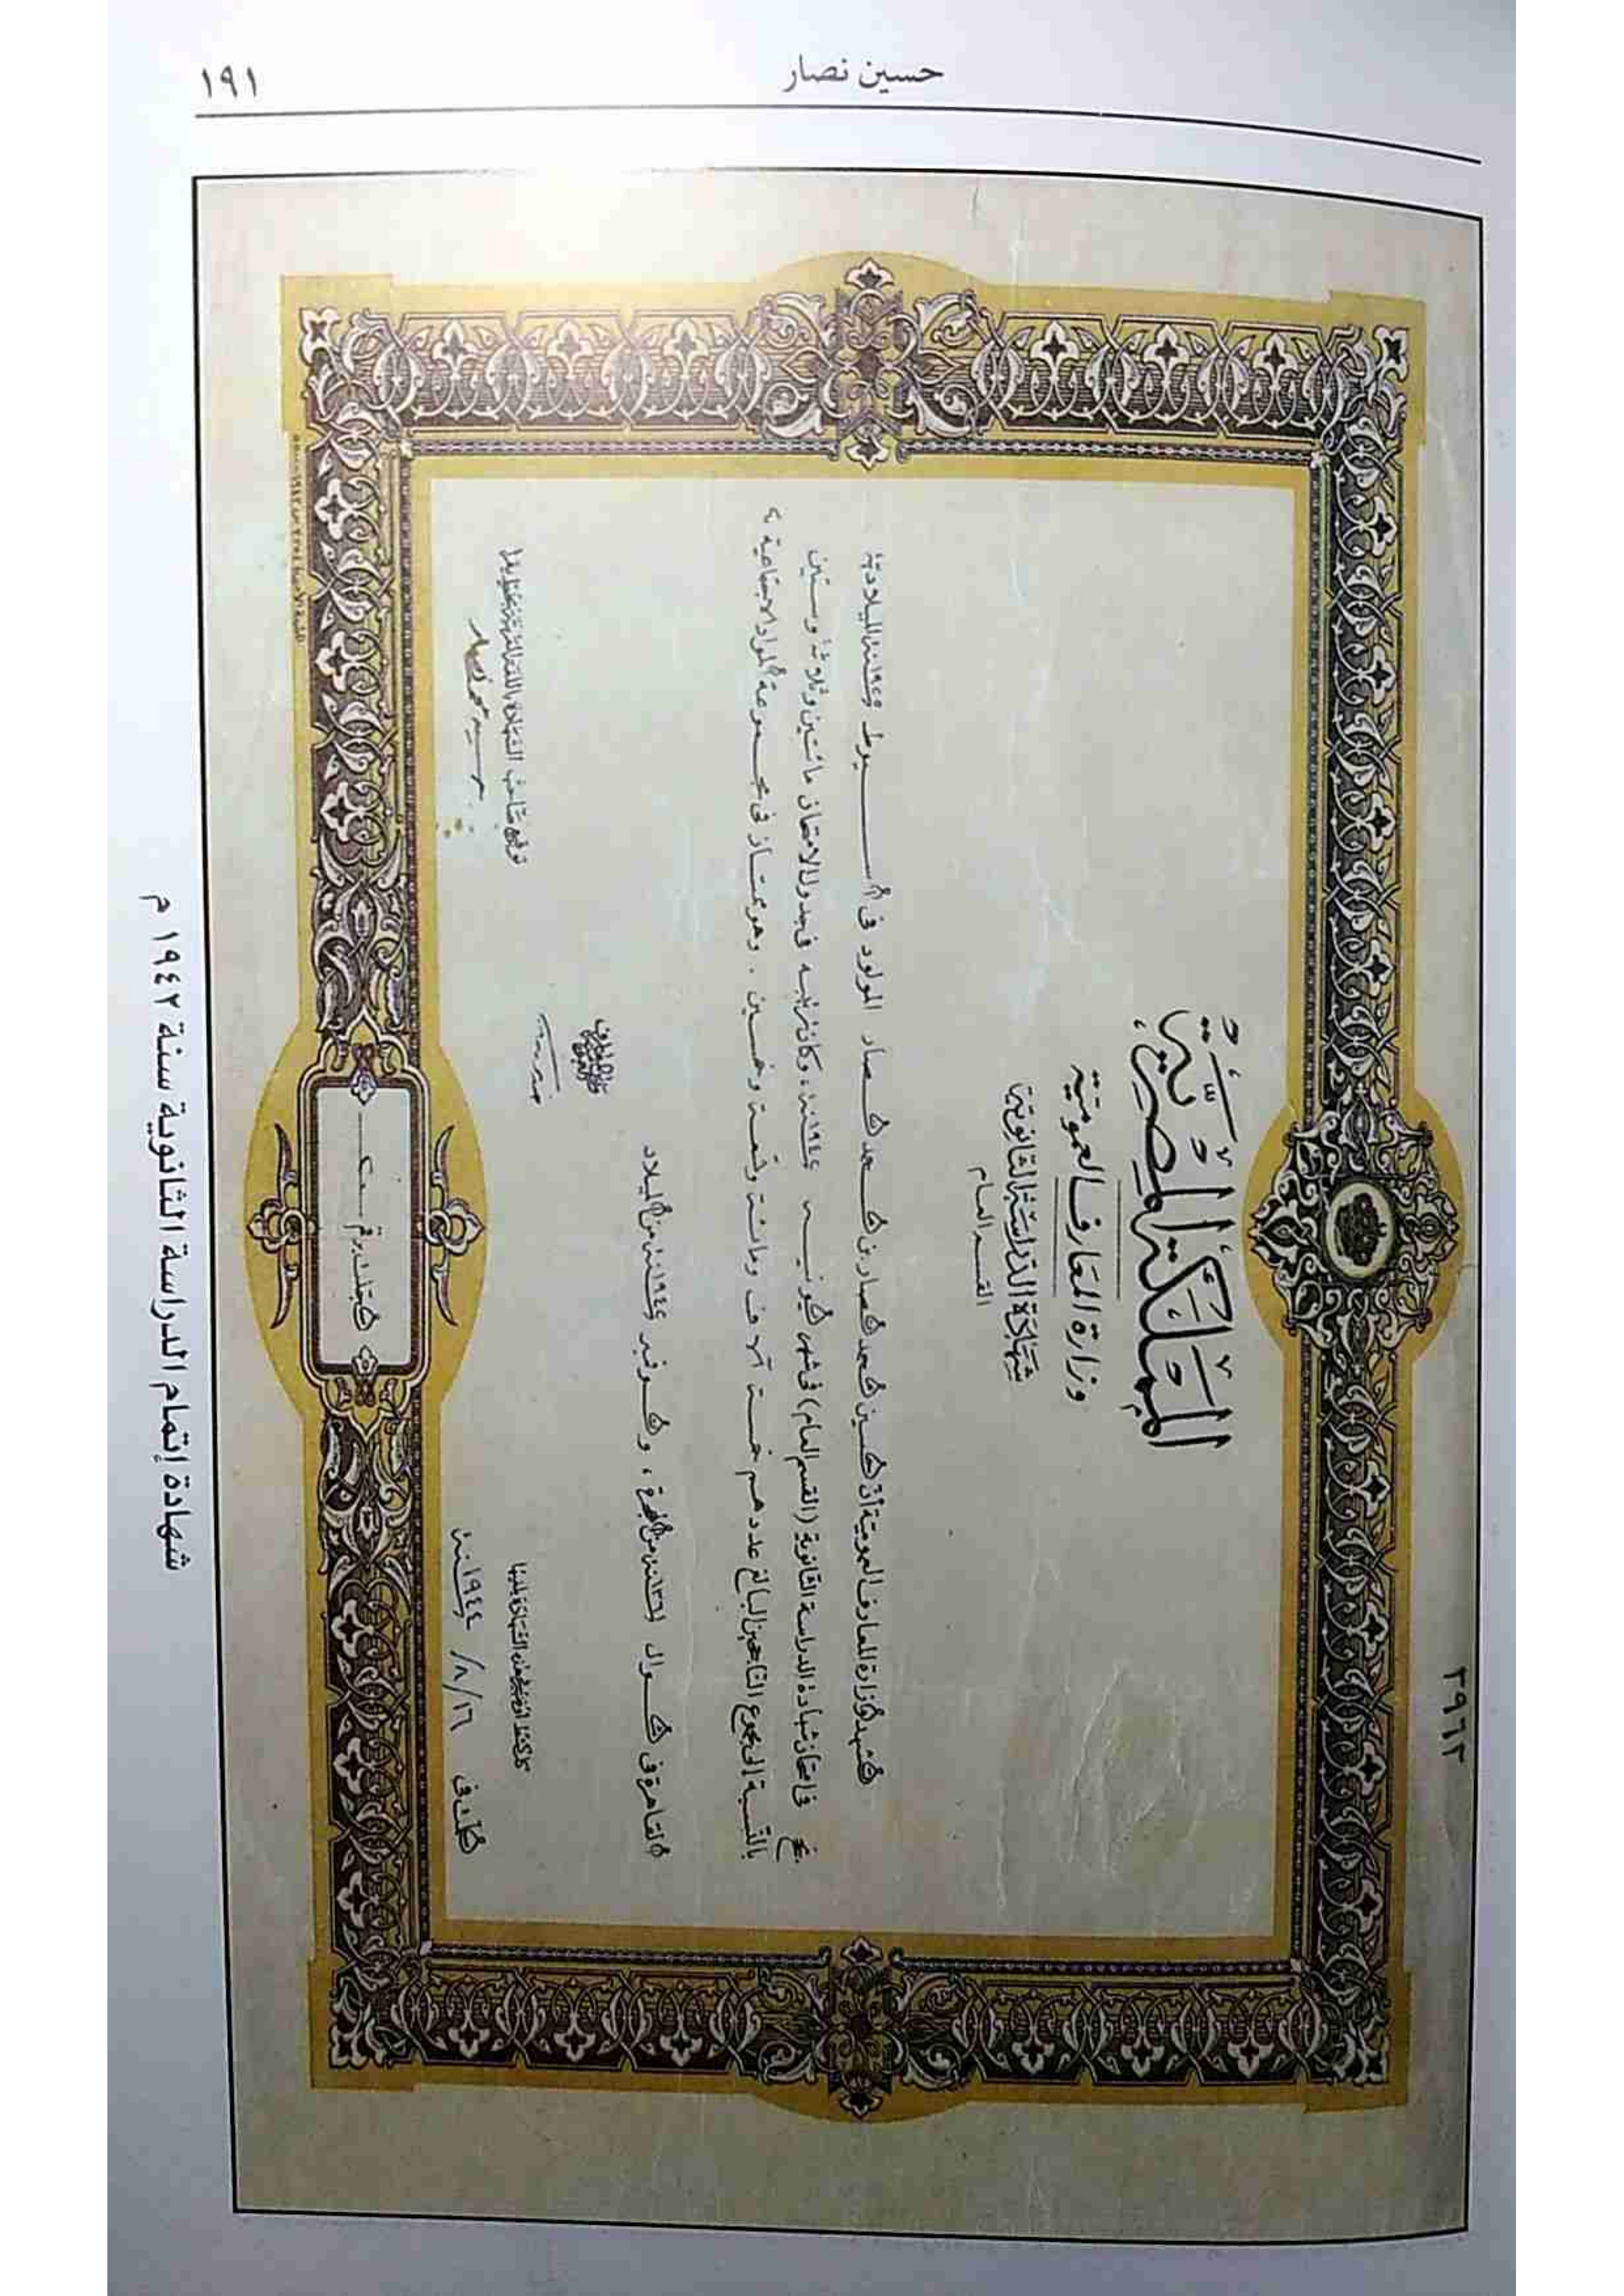 حسين نصار
١٩١
٣٩٦٢
المملكة المصرية
وزارة المعارف العمومية
شهادة الدراسة الثانوية
القسم العام
تشهد وزارة المعارف العمومية أن حسين محمد نصار بن محمد نصار المولود في أسيوط سنة ١٩٢٥ الميلادية
نجح في امتحان شهادة الدراسة الثانوية (القسم العام) في شهر يونيه سنة ١٩٤٢، وكان ترتيبه في جدول الامتحان مائتين وثلاثة وستين
بالنسبة إلى مجموع الناجحين البالغ عددهم خمسة آلاف ومائة وتسعة وخمسين. وهو ممتاز في مجموعة المواد الاجتماعية
القاهرة في شوال سنة ١٣٦١ من الهجرة، نوفمبر سنة ١٩٤٢ من الميلاد
توقيع صاحب الشهادة باللغة العربية
في ١٦/٨/ سنة ١٩٤٤
سجلت برقم
شهادة إتمام الدراسة الثانوية سنة ١٩٤٢ م